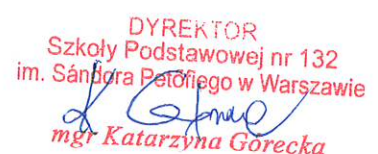 DYREKTOR
Szkoły Podstawowej nr 132
im. Sándora Petőfiego w Warszawie
mgr Katarzyna Górecka